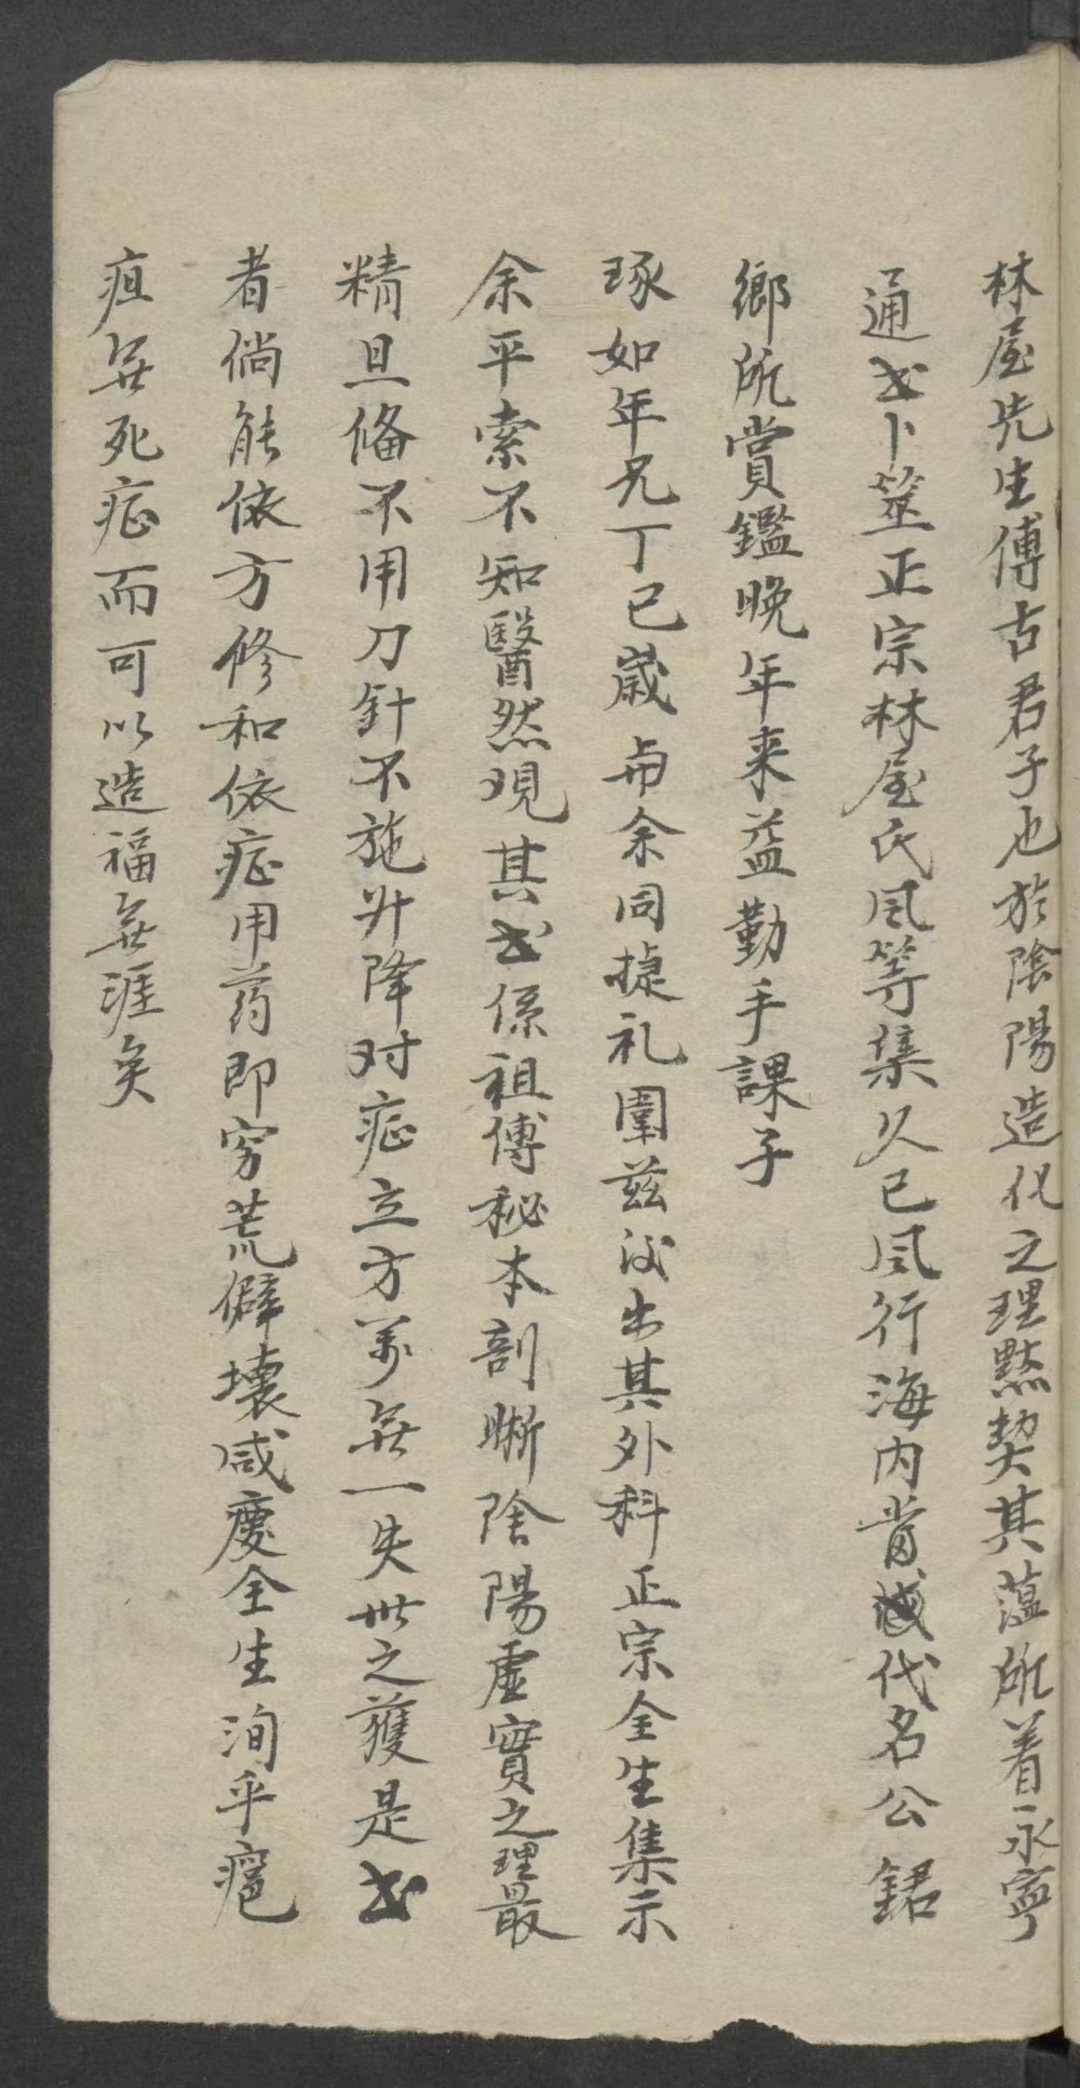 林屋先生傅古君子也於陰陽造化之理黙契其蘊所着永寧
通书卜筮正宗林屋氏风等集久已风行海内嘗代名公鋸
鄉所賞鑑晚年来益勤手課子
琢如年兄丁已歲与余同捷礼圍兹汲出其外科正宗全生集示
余平索不知醫然覌其书係祖傅秘本剖晰陰陽虚實之理最
精且俻不用刀針不施升降对症立方萬無一失世之獲是书
者倘能依方修和依症用药即穷荒僻壤咸慶全生洵乎瘡
疽無死症而可以造福無涯矣